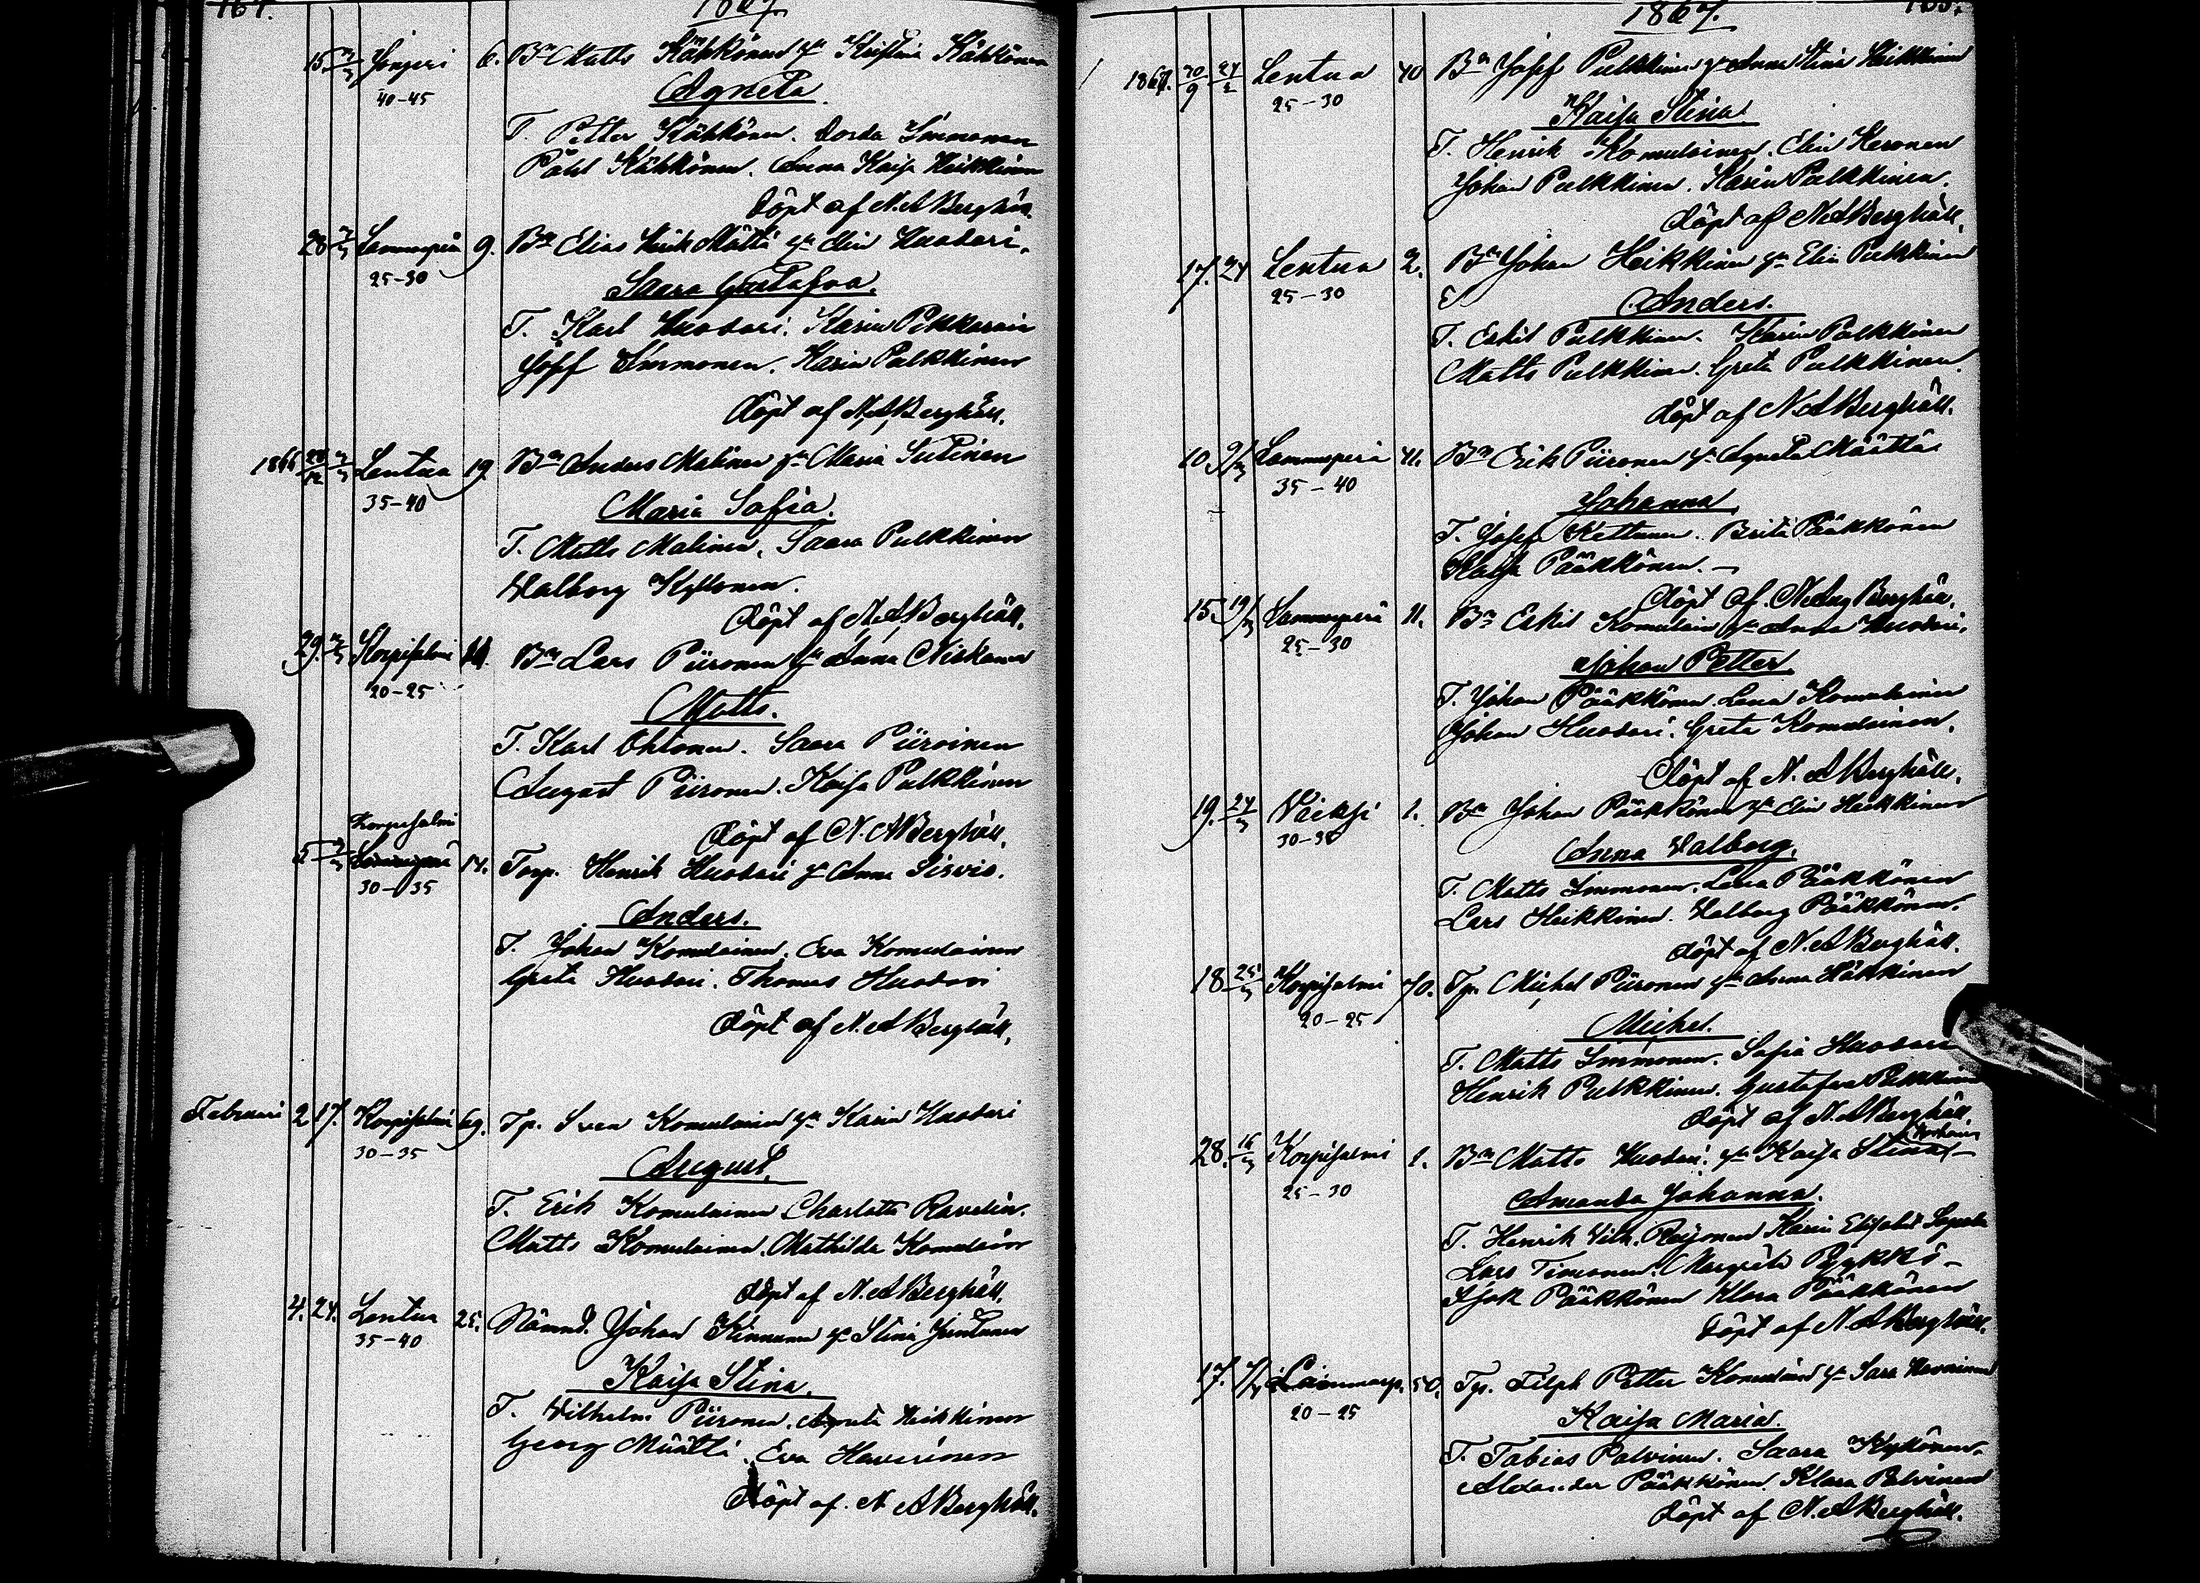 164.
1867.
15 2/3 Jonjeri 6. Bn Matts Kähkönen hu Kristina Kähkönen
40-45
Agneta.
T. Petter Kähkönen. Dorde Immonen
Påhl Kähkönen. Anna Kaisa Heikkinen
Döpt af N. A Berghäll.
28 2/3 Lammasperä 9. Bn Elias Määttä hu Elin Huovari.
25-30
Saara Gustafva.
T. Karl Huovari. Karin Pikkarain
Josef Immonen. Karin Pulkkinen
Döpt af N. A Berghäll.
1866 28/12 2/3 Lentua 19. Bn Anders Malinen hu Maria Sutinen
35-40
Maria Sofia.
T. Matts Malinen. Saara Pulkkinen
Valborg Kyllönen.
Döpt af N. A Berghäll.
29. 2/3 Korpisalmi 14. Bn Lars Piironen hu Anna Niskanen
20-25
Matts.
T. Karl Ohtonen. Saara Piiroinen
August Piironen. Kaisa Pulkkinen
Döpt af N. A Berghäll.
Korpisalmi
5 2/3 14. Torp. Henrik Huovari hu Anna Sirviö.
30-35
Anders.
T. Johan Komulainen. Eva Komulainen
Greta Huovari. Thomas Huovari
Döpt af N. A Berghäll.
Februari 2 17. Korpisalmi 69. Tp. Sven Komulainen hu Karin Huovari
30-35
August.
T. Erik Komulainen. Charlotta Ravelin.
Matts Komulainen. Mathilda Komulain
Döpt af N. A Berghäll.
4. 24. Lentua 25. Nämnd. Johan Kinnunen hu Stina Juntunen
35-40
Kaisa Stina.
T. Vilhelm Piironen. Agneta Heikkinen
Georg Määttä. Eva Haverinen
Döpt af. N A Berghäll.
1867.
165.
20/9 24/2 Lentua 40 Bn Josef Pulkkinen hu Anna Stina Heikkinen
25-30
Kaisa Stina.
T. Henrik Komulainen. Elin Keronen
Johan Pulkkinen. Karin Pulkkinen.
Döpt af N A Berghäll.
17. 24 Lentua 2. Bn Johan Heikkinen hu Elin Pulkkinen
25-30
Anders.
T. Eskil Pulkkinen. Karin Pulkkinen
Matts Pulkkinen. Greta Pulkkinen.
Döpt af N. A Berghäll.
10 9/3 Lammasperä 41. Bn Erik Piironen hu Agneta Määttä
35-40
Johanna.
T. Josef Kettunen. Brita Pääkkönen
Kaisa Pääkkönen. —
Döpt af. N. Aug Berghäll.
15 19/3 Lammasperä 11. Bn Eskil Komulain hu Anna Huovari.
25-30
Johan Petter.
T. Johan Pääkkönen. Lena Komulainen
Johan Huovari. Greta Komulainen.
Döpt af N. A Berghäll.
19. 24/3 Vieksi 1. Bn Johan Pääkkönen hu Elin Heikkinen
30-35
Anna Valborg.
T. Matts Immonen. Lena Pääkkönen
Lars Heikkinen. Valborg Pääkkönen.
Döpt af N. A Berghäll.
18 25/3 Korpisalmi 70. Tp. Michel Piironen hu Anna Häkkinen
20-25
Michel.
T. Matts Immonen. Sofia Huovari
Henrik Pulkkinen. Gustafva Pulkkinen
Döpt af N. A Berghäll.
28. 16/3 Korpisalmi 1. Bn Matts Huovari. hu Kaisa Stina
25-30
Amanda Johanna.
T. Henrik Vilh. Karin Elisabet
Lars Timonen. Margreta Pyykkö -
Isak Pääkkönen Klara Pääkkönen
Döpt af N A Berghäll.
17. Lammasp. 50. Petter Komulain hu Sara
20-25
Kaisa Maria.
T. Tobias Polvinen. Saara Kyllönen.
Alexander Pääkkönen. Klara Polvinen
Döpt af N. A Berghäll.